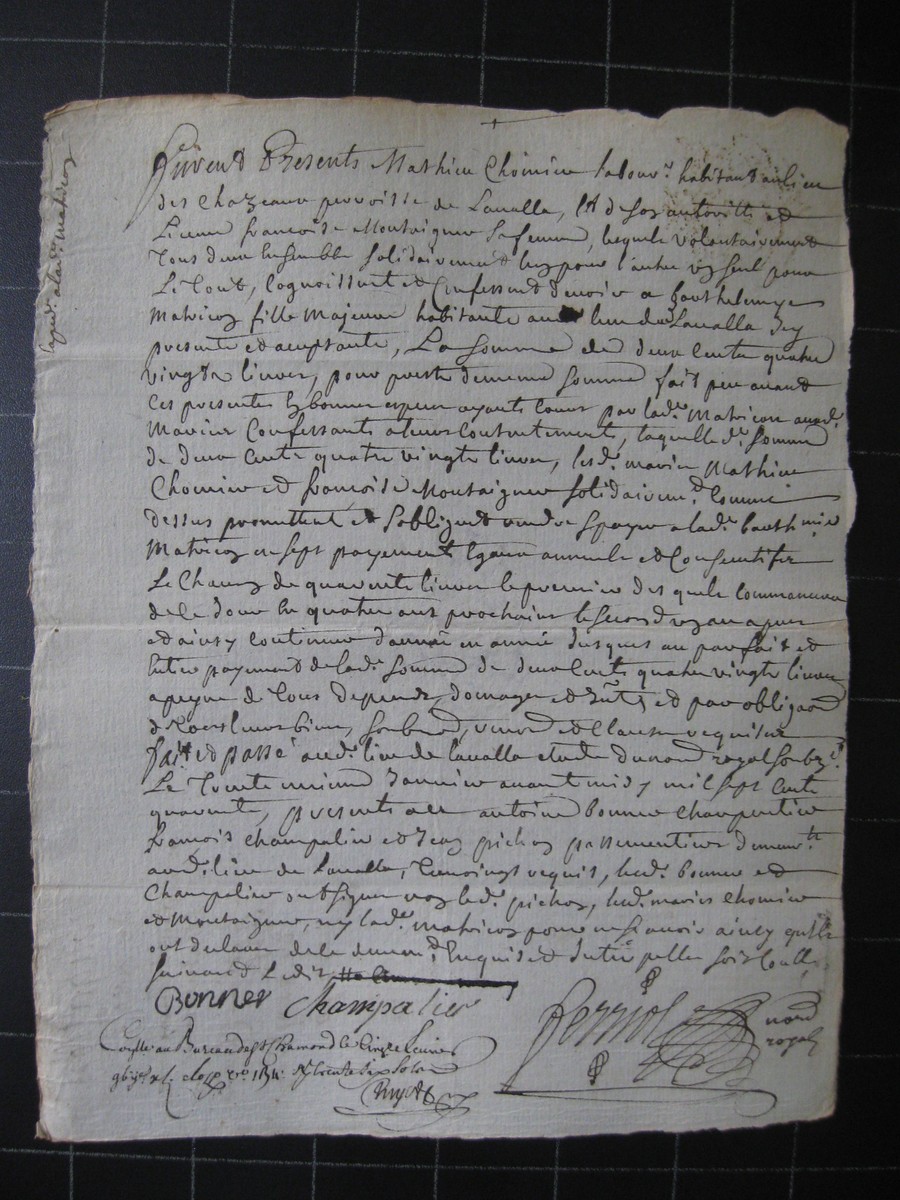 furent Presents Mathieu Chomier labour.r habitant au lieu
des Chazeaux perroisse de Lavalla, Et de son autoritté et
Licence francoise Montaignier sa femme, lequels volontairement
tous deux Ensemble solidairement lun pour l'autre un seul pour
Le tout, Cognoissent et Confessent devoir a barthelemye
Matricon fille Majeure habitante au lieu de Lavalla Icy
presente et aceptante, La somme de deux Cents quatre
vingts livres, pour preste de meme somme fait peu avand
Ces presentes En bonnes especes ayants Cours par lad.e Matricon auxd.
Mariés Confessants a leurs Contentement, laquelle d.e somme
de deux Cents quatre vingts livres, lesd. mariés Mathieu
Chomier et francoise Montaignier solidairem.d Comme
dessus promettent et s'obligent rendre & payer a lad.e barth.mie
Matricon en sept payements Egaux annuels et Consecutifs
Le Chacun de quarente livres le premier des quels Commancera
de ce Jour En quatre ans prochains le second un an apres
et ainsy Continuer d'année en année Jusques au parfait et
Entier payement de lad.e somme de deux Cents quatre vingts livres
a peyne de tous depends, domages et Inte.ts, et par obliga.on
de tous leurs biens, renon et Clauses requises
fait et passé aud. lieu de lavalla etude du no.re royal sousig.é
Le Trente unieme Janvier avant midy mil sept Cents
quarente, presents a ce antoine bonner charpentier
francois Champalier et Jean pichon passementiers demeur.ts
aud. lieu de Lavalla, temoings requis, lesd. bonner et
Champalier ont signer non led. pichon, lesd. mariés Chomier
et Montaignier, ny lad.e Matricon pour ne scavoir ainsy qu'ils
ont declarer de ce Enquis et
suivant L'edit
Bonner Champalier
Ferriol no.re
royal
Con.lle au Bureau de St Chamond le